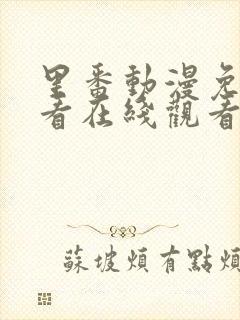 里番動漫免
看在綫觀看
蘇坡煩有點煩